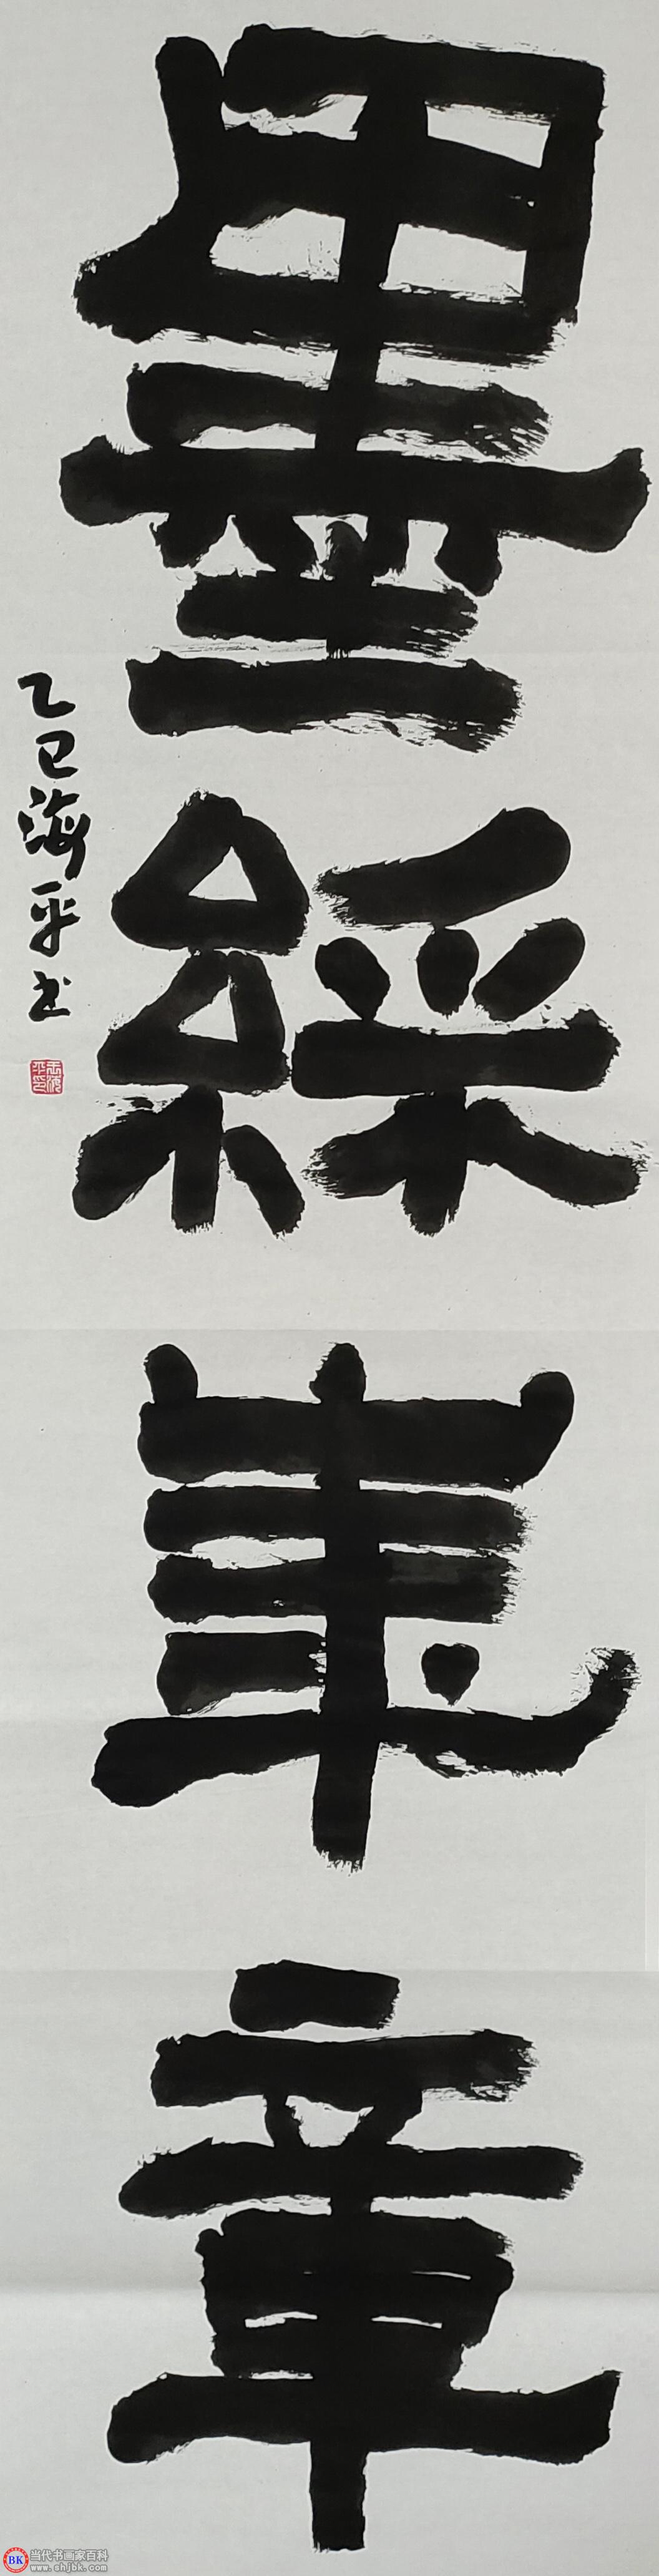 墨綵華章
乙巳海平书
BK
当代书画家百科
www.shjbk.com